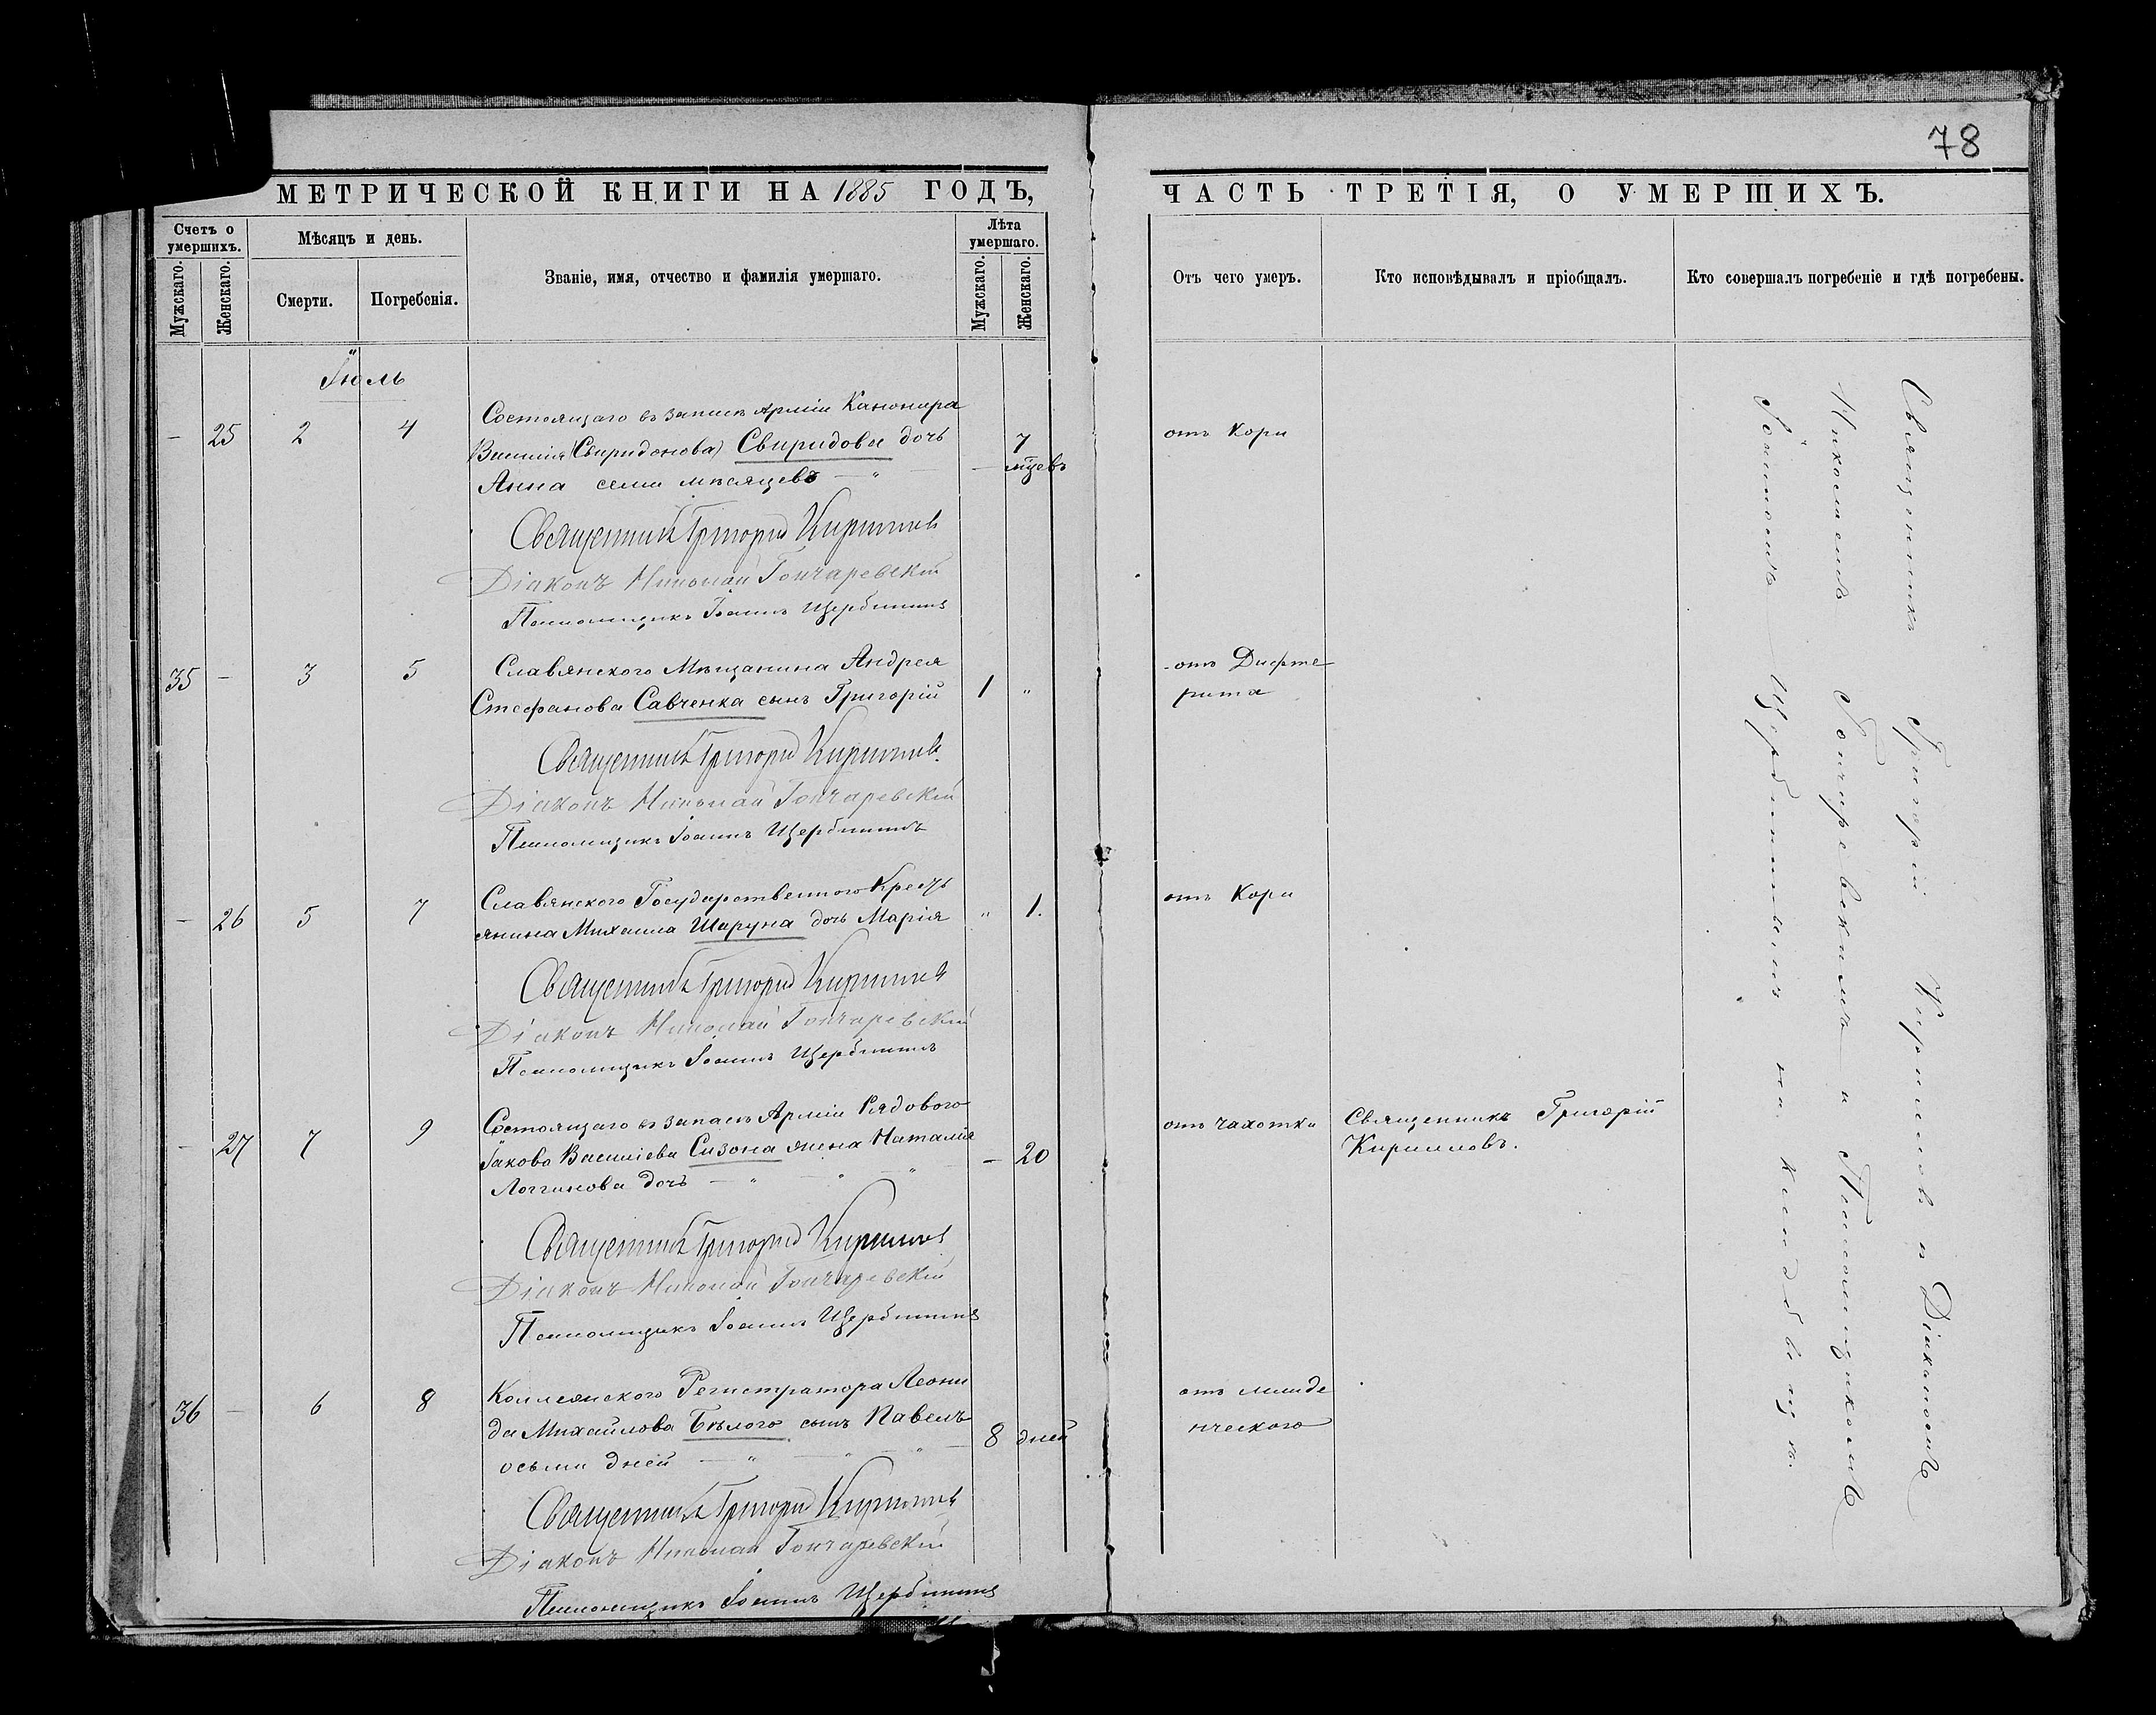 78
МЕТРИЧЕСКОЙ КНИГИ НА 1885 ГОДЪ,
Счетъ о умершихъ.
Мужскаго.
Женскаго.
Мѣсяцъ и день.
Смерти.
Погребенія.
Званіе, имя, отчество и фамилія умершаго.
Лѣта умершаго.
Мужскаго.
Женскаго.
Іюль
- 25 2 4
Состоящаго въ запасѣ Арміи Канонира
Василія (Свиридонова) Свиридова дочь
Анна семи мѣсяцевъ — "
— 7 мѣцевъ
Священникъ Григорій Кирилловъ
Діаконъ Николай Гончаревскій
Псаломщикъ Іоаннъ Щербининъ
35 - 3 5
Славянского Мѣщанина Андрея
Стефанова Савченка сынъ Григорій
1 "
Священникъ Григорій Кирилловъ
Діаконъ Николай Гончаревскій
Псаломщикъ Іоаннъ Щербининъ
- 26 5 7
Славянского Государственного Кресть
янина Михаила Шаруна дочь Марія
" 1.
Священникъ Григорій Кирилловъ
Діаконъ Николай Гончаревскій
Псаломщикъ Іоаннъ Щербининъ
- 27 7 9
Состоящаго въ запасѣ Арміи Рядового
Іакова Василіева Сизона жена Наталія
Логгинова дочь — " — " — "
— 20
Священникъ Григорій Кирилловъ
Діаконъ Николай Гончаревскій
Псаломщикъ Іоаннъ Щербининъ
36 - 6 8
Коллежского Регистратора Леони
да Михайлова Бѣлого сынъ Павелъ
осьми дней — " — " — "
8 дней
Священникъ Григорій Кирилловъ
Діаконъ Николай Гончаревскій
Псаломщикъ Іоаннъ Щербининъ
ЧАСТЬ ТРЕТІЯ, О УМЕРШИХЪ.
Отъ чего умеръ.
Кто исповѣдывалъ и пріобщалъ.
Кто совершалъ погребеніе и гдѣ погребены.
отъ Кори
отъ Дифте
рита
отъ Кори
отъ чахотки
Священникъ Григорій
Кирилловъ.
отъ младе
нческого
Священникъ Григорій Кирилловъ и Діакономъ
Николаемъ Гончаревскимъ и Псаломщикомъ
Іоанномъ Щербининымъ на кладбищѣ.